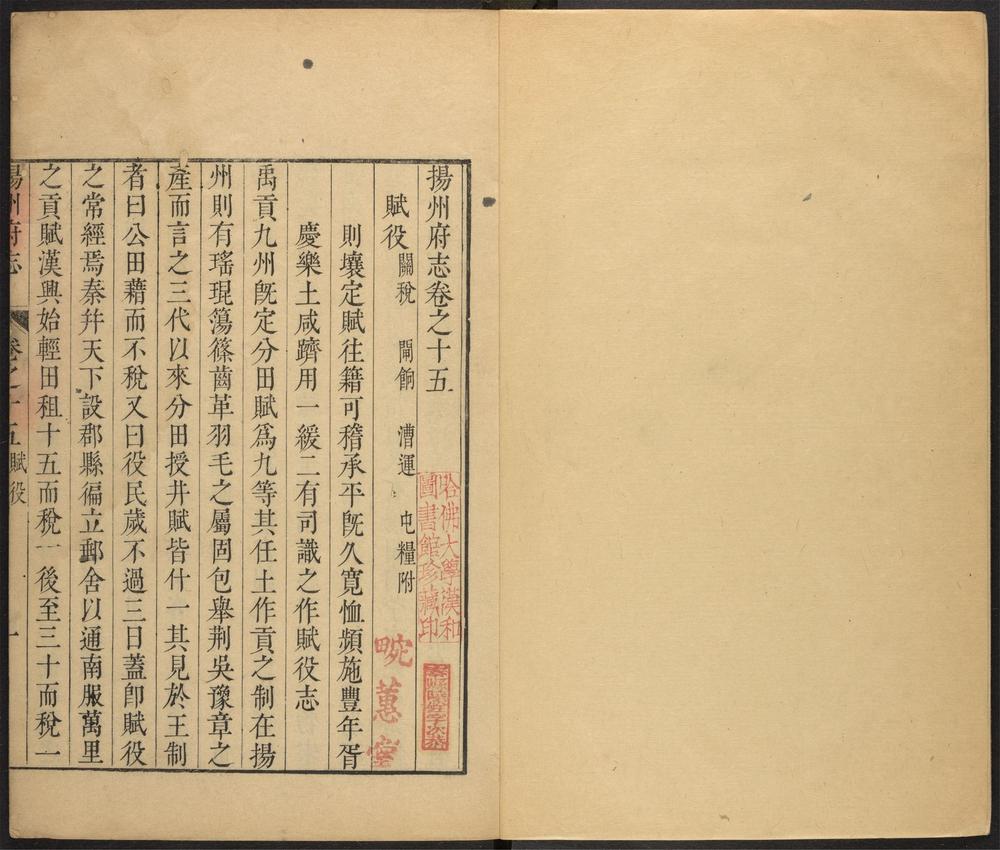 揚州府志卷之十五
賦役 關稅 閘餉 漕運 屯糧附
則壤定賦往籍可稽承平旣久寬恤頻施豐年胥
慶樂土咸躋用一緩二有司識之作賦役志
禹貢九州旣定分田賦爲九等其任土作貢之制在揚
州則有瑤琨簜篠齒革羽毛之屬固包舉荆吳豫章之
產而言之三代以來分田授井賦皆什一其見於王制
者曰公田藉而不稅又曰役民歲不過三日蓋卽賦役
之常經焉秦幷天下設郡縣徧立郵舍以通南服萬里
之貢賦漢興始輕田租十五而稅一後至三十而稅一
揚州府志 卷之十五 賦役 一
哈佛大學漢和
圖書館珍藏印
畹蕙堂